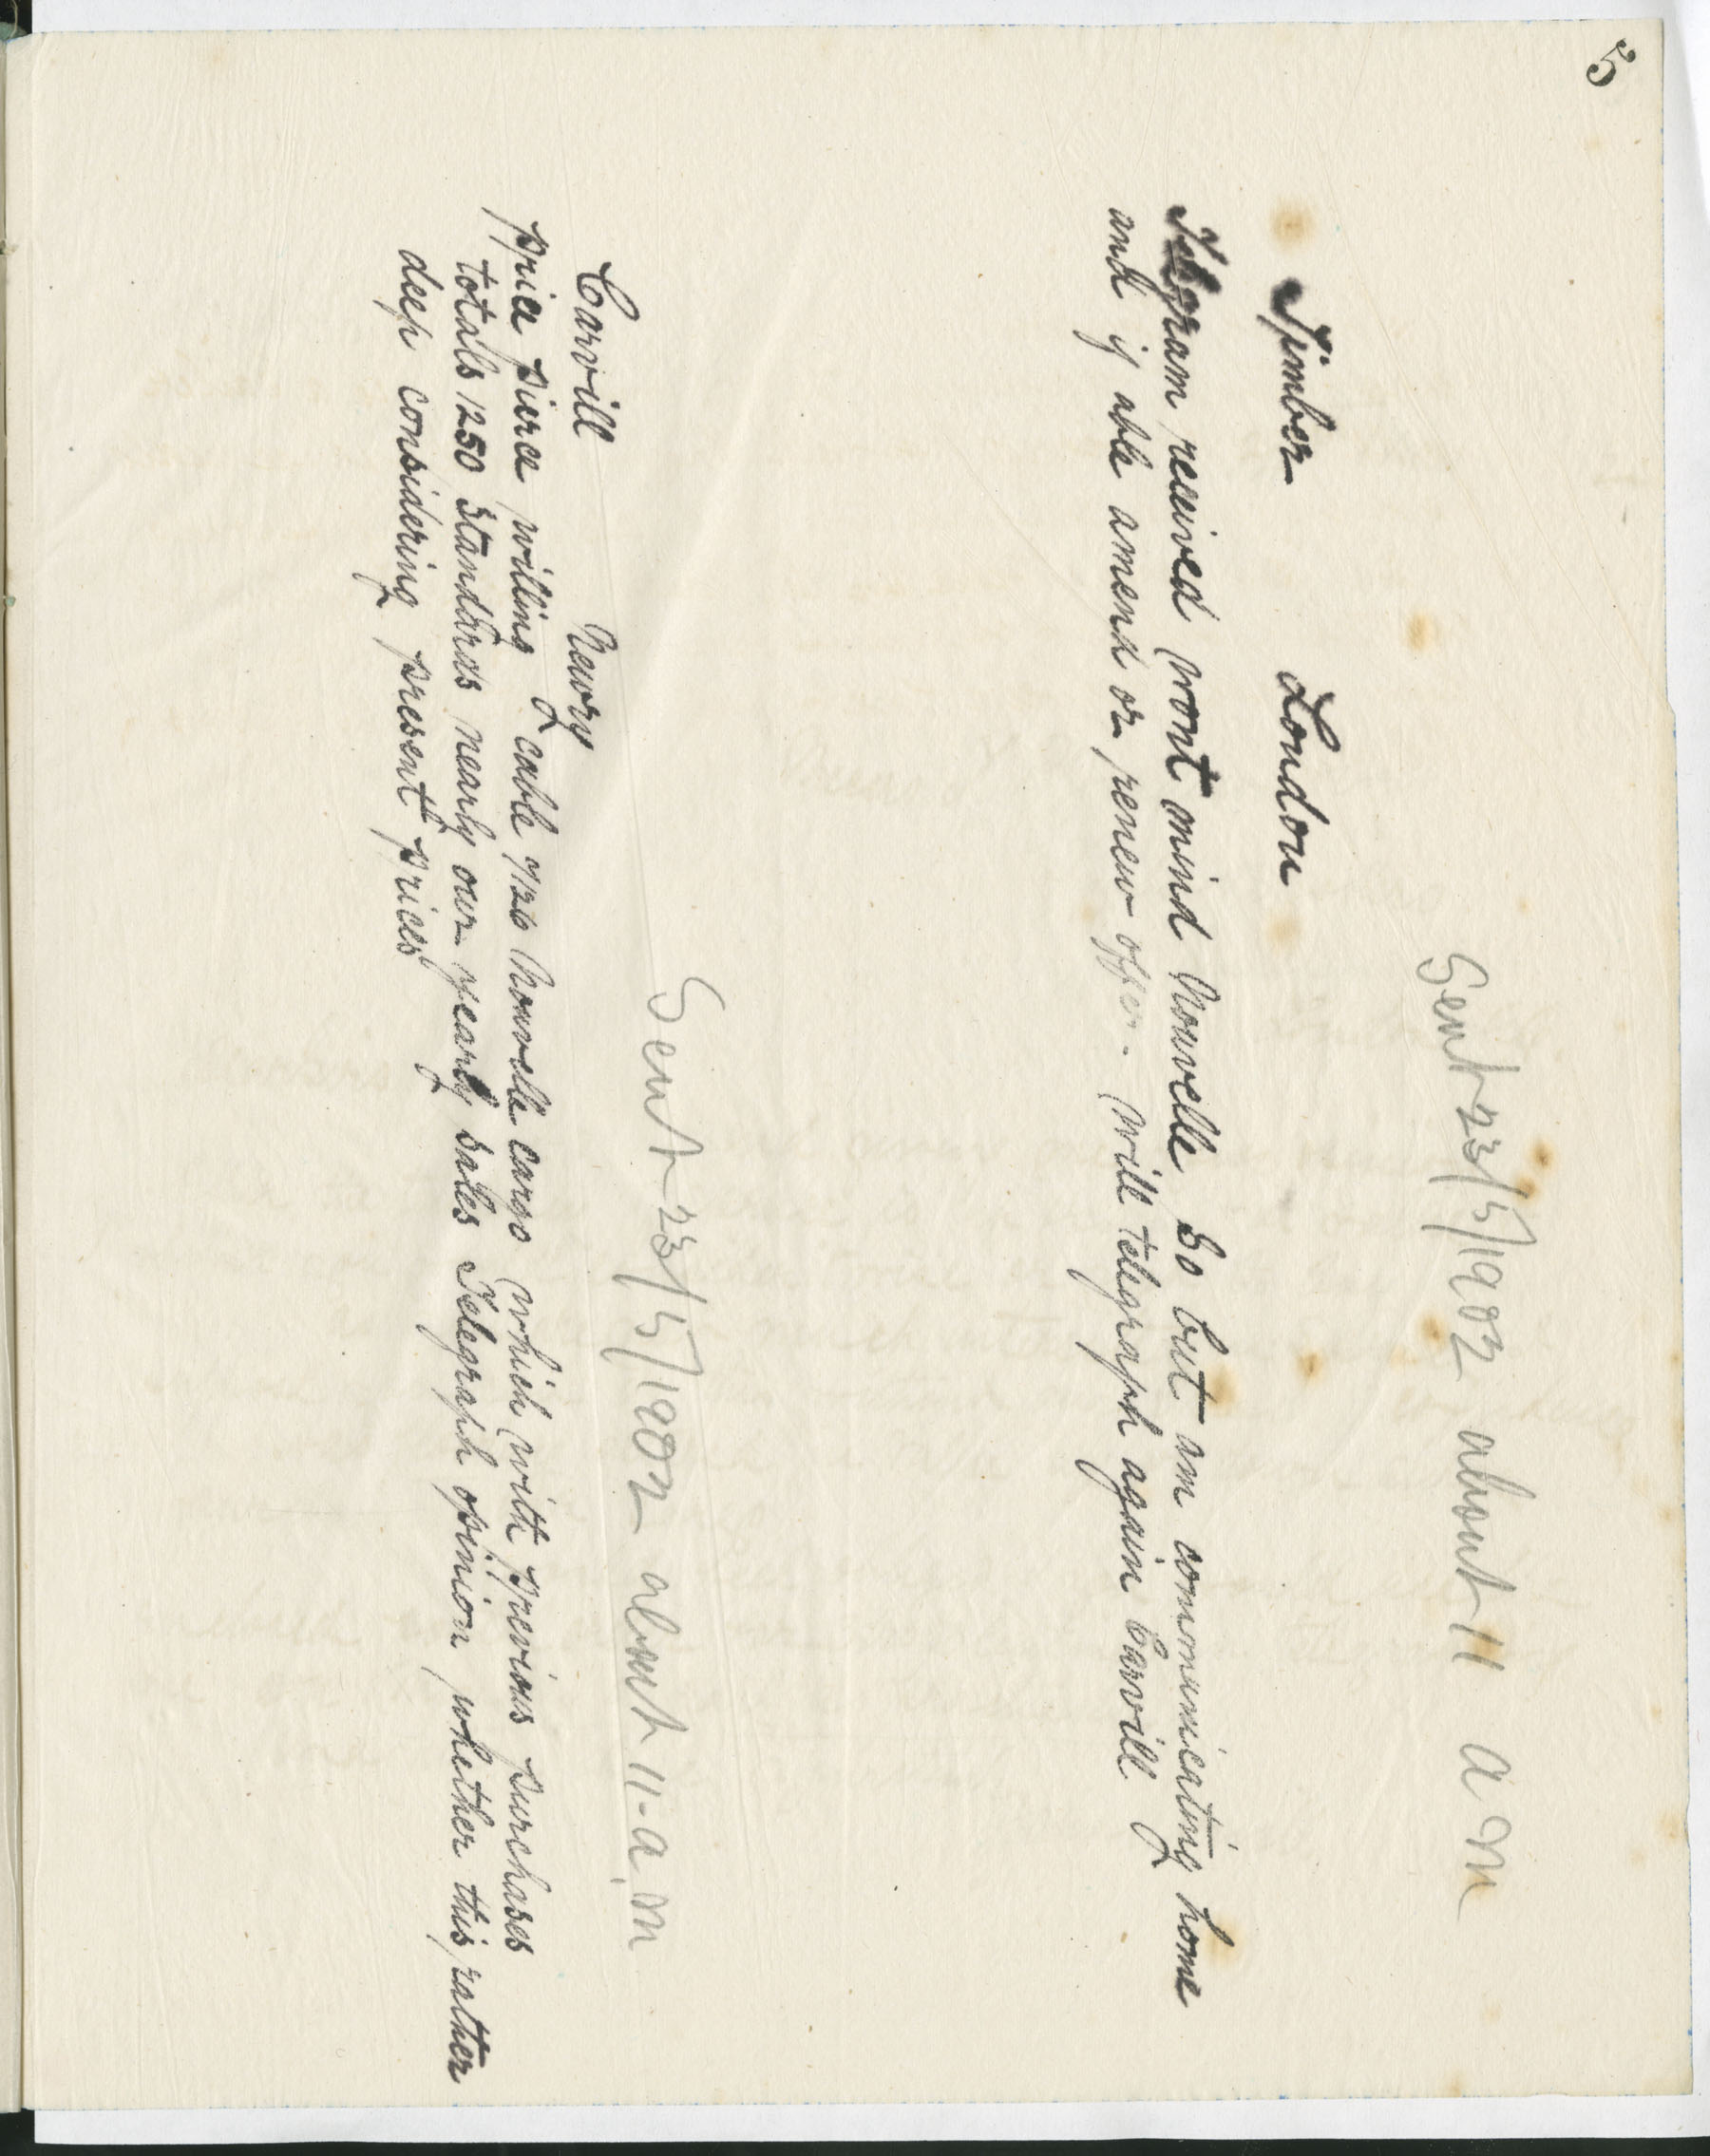 5
Sent 23/5/1902 about 11 a m
Timber London
Telegram received wont mind Nouvelle so but am communicating home
and if able amend or renew offer. Will telegraph again Carvill
Sent 23/5/1902 about 11-a.m
Carvill Newry
Price Pierce willing cable 7/26 Nouvelle cargo which with previous purchases
totals 1250 Standards nearly our yearly sales Telegraph opinion whether this rather
deep considering present prices